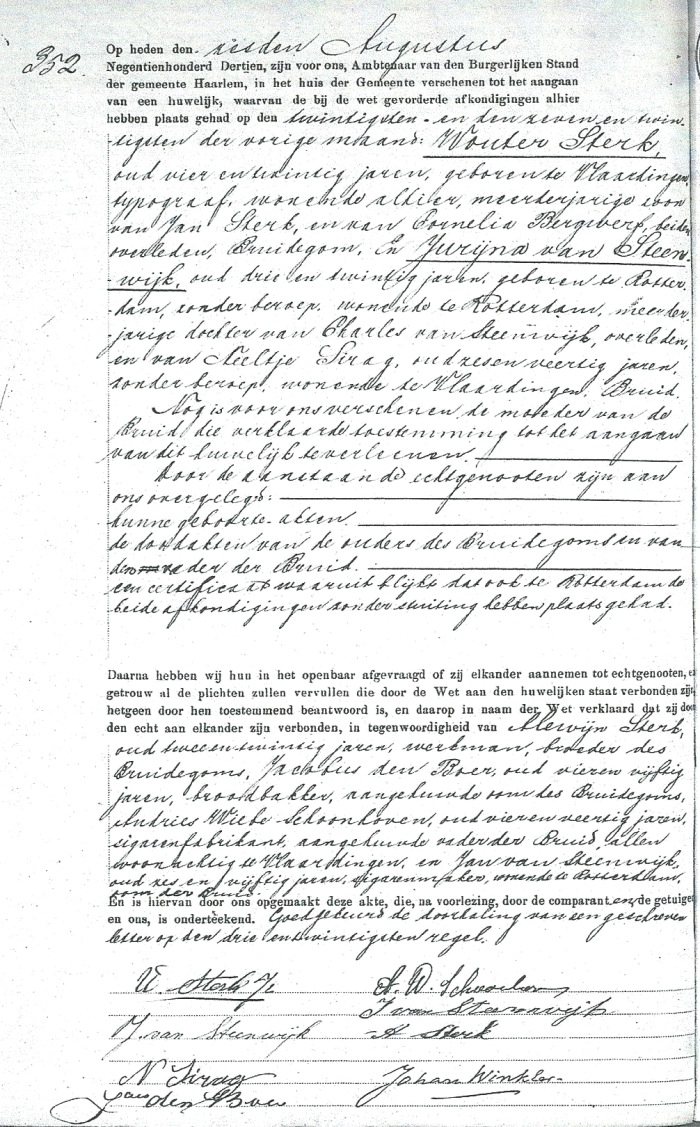 352.
Op heden den zesden Augustus
Negentienhonderd Dertien, zijn voor ons, Ambtenaar van den Burgerlijken Stand
der gemeente Haarlem, in het huis der Gemeente verschenen tot het aangaan
van een huwelijk, waarvan de bij de wet gevorderde afkondigingen alhier
hebben plaats gehad op den twintigsten - en den zeven en twin-
-tigsten der vorige maand: Wouter Sterk,
oud vier en twintig jaren, geboren te Vlaardingen,
typograaf, wonende alhier, meerderjarige zoon
van Jan Sterk, en van Cornelia Bergwerf, beiden
overleden, Bruidegom, En Jurijna van Steen-
-wijk, oud drie en twintig jaren, geboren te Rotter-
-dam, zonder beroep, wonende te Rotterdam, meerder-
-jarige dochter van Charles van Steenwijk, overleden,
en van Neeltje Sirag, oud zes en veertig jaren,
zonder beroep, wonende te Vlaardingen, Bruid.
Nog is voor ons verschenen de moeder van de
Bruid, die verklaarde toestemming tot het aangaan
van dit huwelijk te verleenen.
Door de aanstaande echtgenooten zijn aan
ons overgelegd:
hunne geboorte-akten
de doodakten van de ouders des Bruidegoms en van
den vader der Bruid.
een certificaat waaruit blijkt dat ook te Rotterdam de
beide afkondigingen zonder stuiting hebben plaats gehad.
Daarna hebben wij hun in het openbaar afgevraagd of zij elkander aannemen tot echtgenooten, en
getrouw al de plichten zullen vervullen die door de Wet aan den huwelijken staat verbonden zijn
hetgeen door hen toestemmend beantwoord is, en daarop in naam der Wet verklaard dat zij door
den echt aan elkander zijn verbonden, in tegenwoordigheid van Alewijn Sterk,
oud twee en twintig jaren, werkman, broeder des
Bruidegoms, Jacobus den Boer, oud vier en vijftig
jaren, broodbakker, aangehuwde oom des Bruidegoms,
Andries Wiebe Schoonhoven, oud vier en veertig jaren,
sigarenfabrikant, aangehuwde vader der Bruid, allen
woonachtig te Vlaardingen, en Jan van Steenwijk,
oud zes en vijftig jaren, sigarenmaker, wonende te Rotterdam,
oom der Bruid.
En is hiervan door ons opgemaakt deze akte, die, na voorlezing, door de comparanten, de getuigen
en ons, is onderteekend. Goedgekeurd de doorhaling van een geschreven
letter op den drie en twintigsten regel.
W. Sterk Jz
A. W. Schoonhoven
J van Steenwijk
J. van Steenwijk
A Sterk
N Sirag
Johan Winkler
den Boer